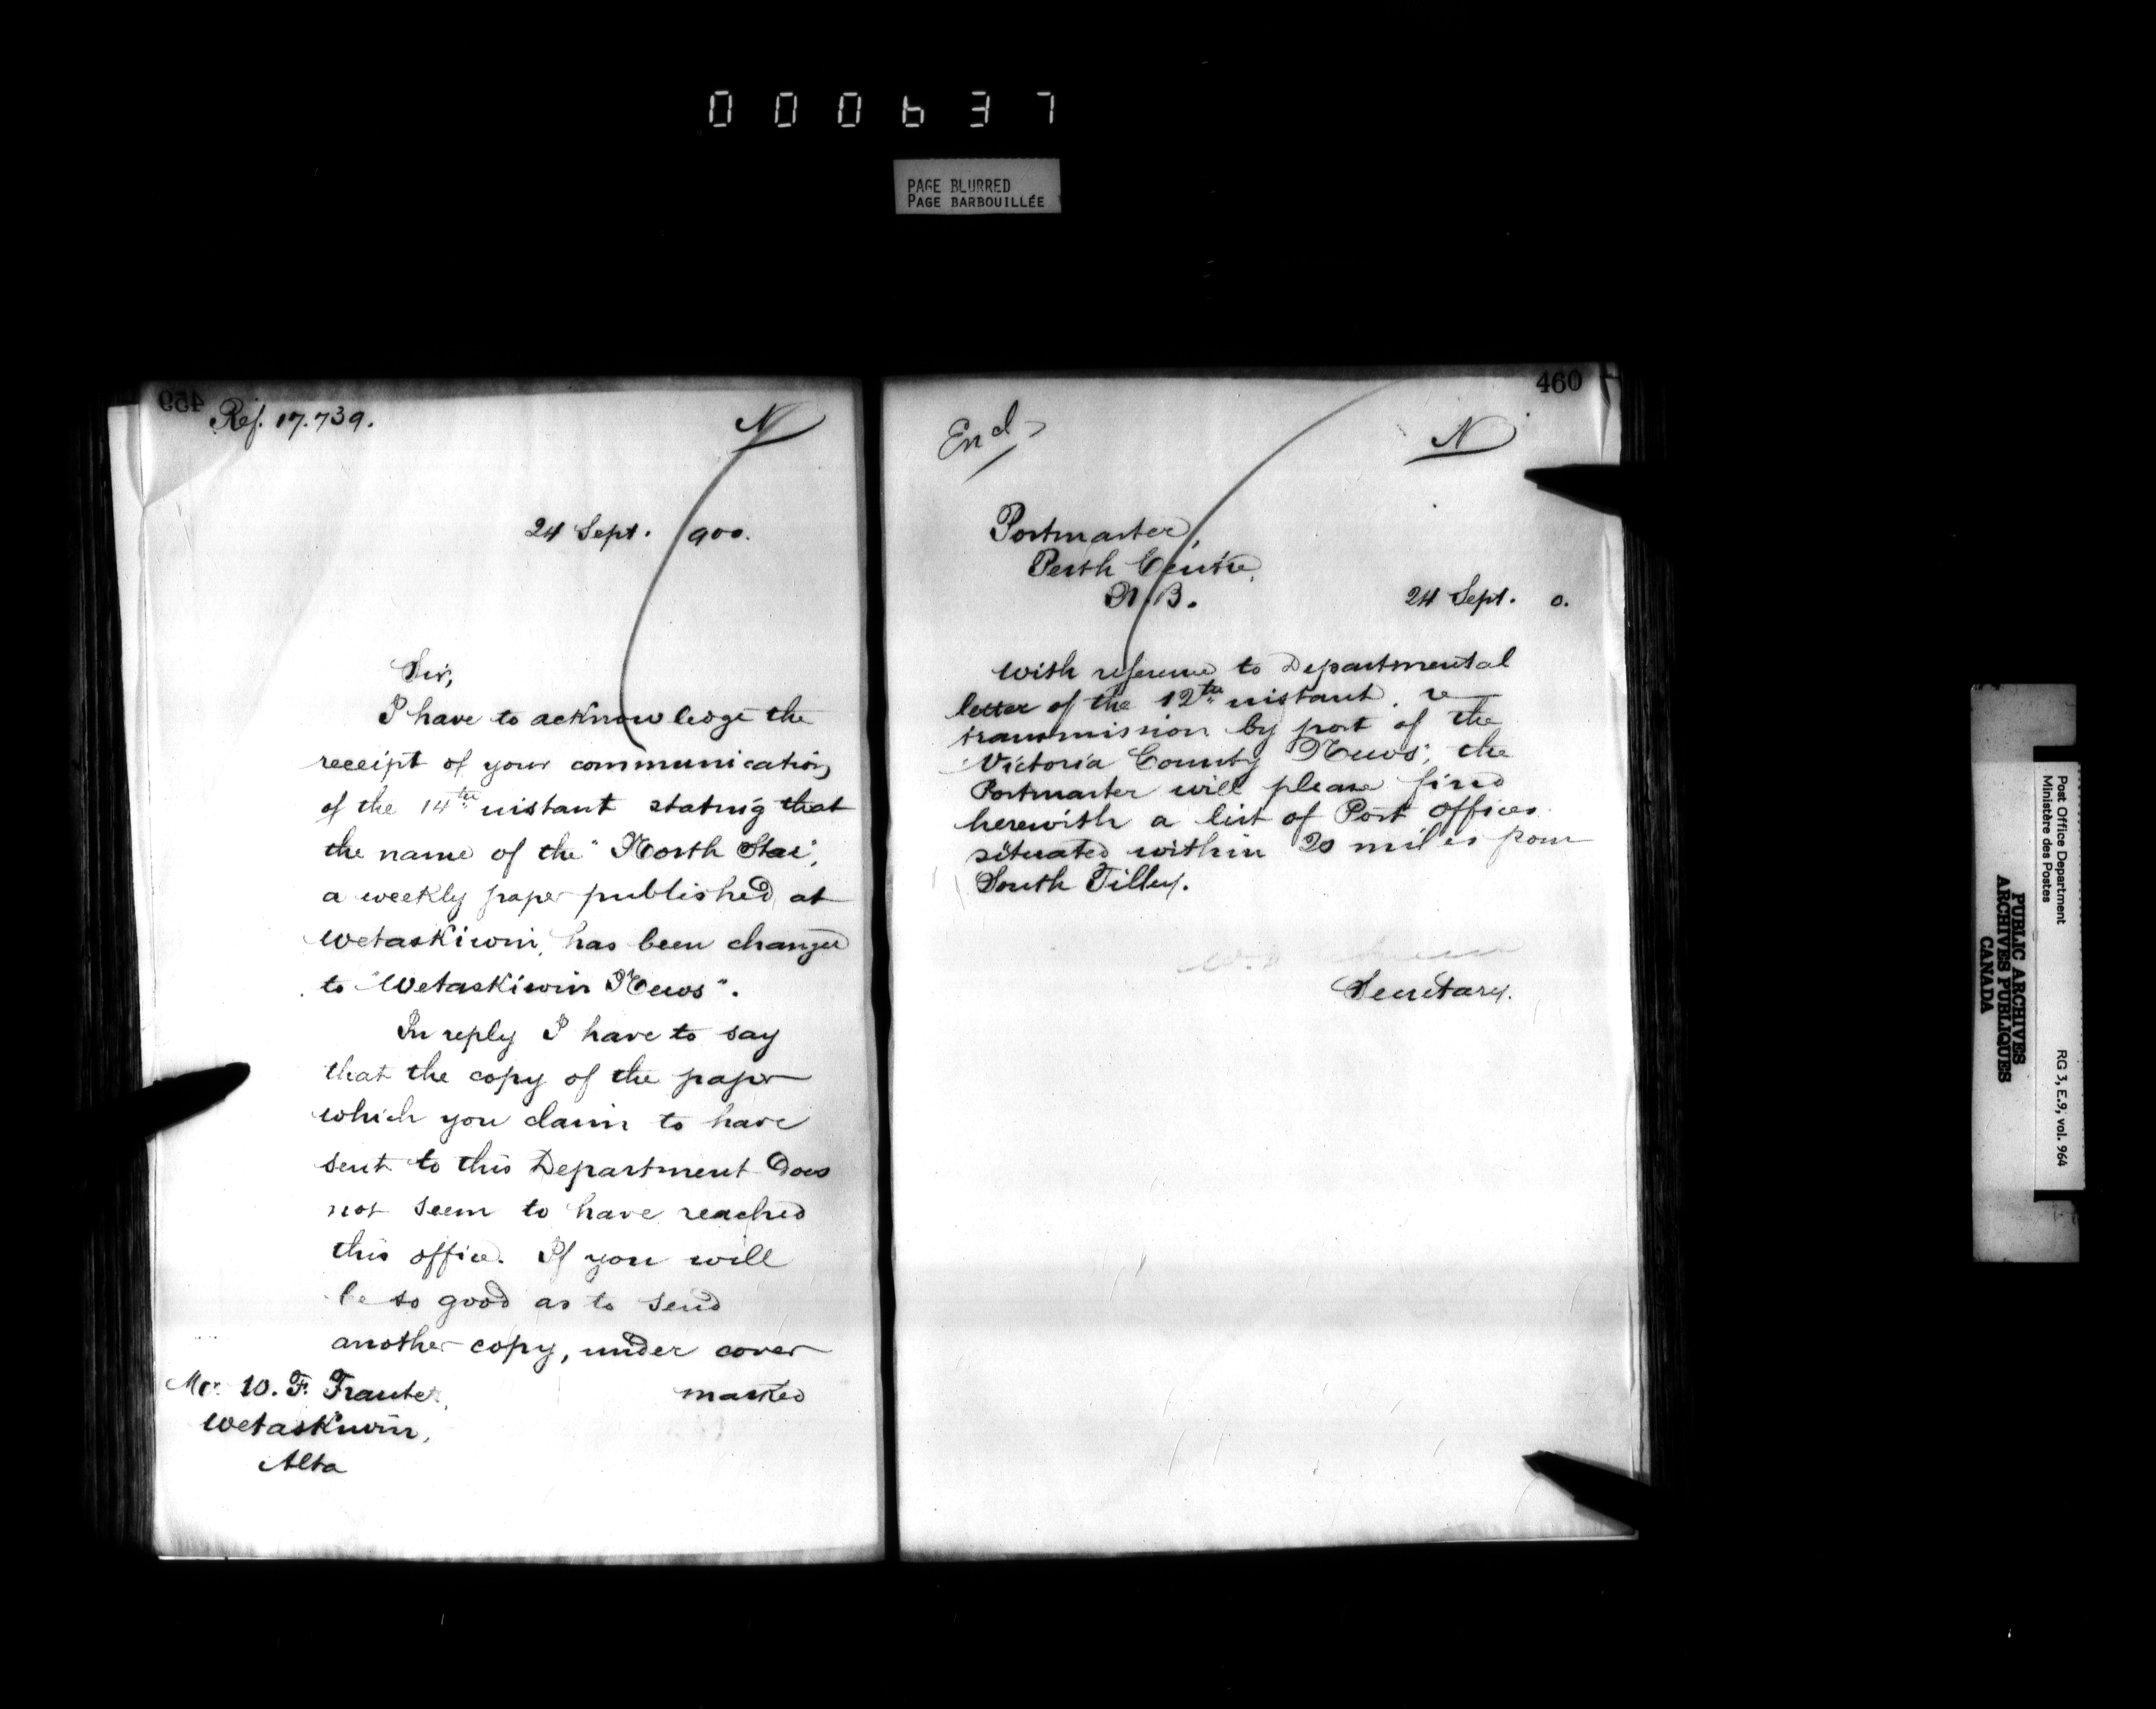 000637
PAGE BLURRED
PAGE BARBOUILLÉE
459
Ref. 17.739.
N
24 Sept. 900.
Sir,
I have to acknowledge the
receipt of your communication,
of the 14th instant stating that
the name of the "North Star",
a weekly paper published at
Wetaskiwin, has been changed
to "Wetaskiwin News".
In reply I have to say
that the copy of the paper
which you claim to have
sent to this Department does
not seem to have reached
this office. If you will
be so good as to send
another copy, under cover
marked
Mr. W. F.
Wetaskiwin,
Alta
460
Encl
N
Postmaster,
Perth Centre,
N.B.
24 Sept. 0.
With reference to Departmental
letter of the 12th instant, re
transmission by post of the
"Victoria County News", the
Postmaster will please find
herewith a list of Post Offices
situated within 20 miles from
South Tilley.
Secretary.
Post Office Department
Ministère des Postes
RG 3, E.9, vol. 964
PUBLIC ARCHIVES
ARCHIVES PUBLIQUES
CANADA